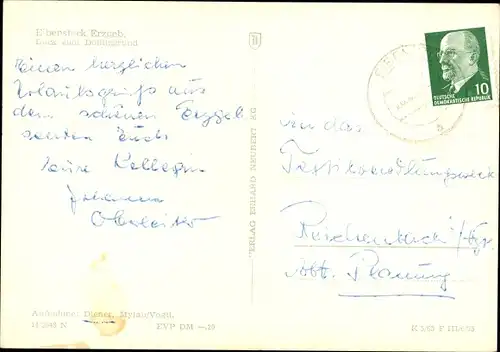 Eibenstock Erzgeb.
Blick zum Dönitzgrund
Einen herzlichen
Urlaubsgruß aus
dem schönen Erzgeb.
senden Euch
Eure Kollegin
Johanna
an das
Textilveredlungswerk
Reichenbach/Vgt.
Abt. Planung
VERLAG ERHARD NEUBERT KG
DEUTSCHE
DEMOKRATISCHE REPUBLIK
10
Aufnahme: Diener, Mylau/Vogtl.
H 2048 N EVP DM —.10
K 5/65 F